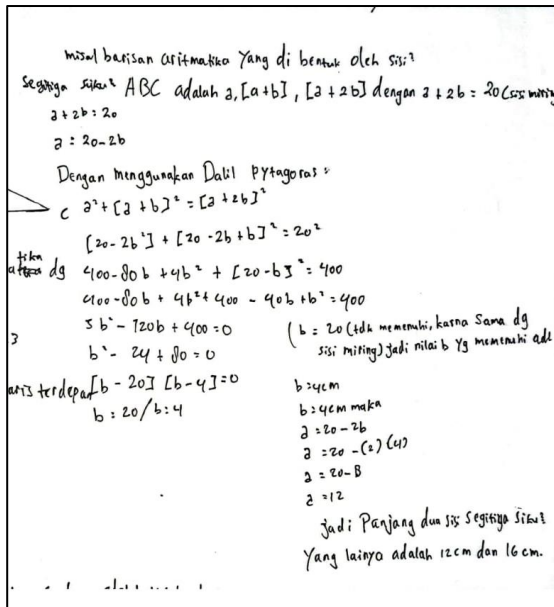 misal barisan aritmatika yang di bentuk oleh sisi²
segitiga siku² ABC adalah a, [a+b], [a+2b] dengan a+2b = 20 (sisi miring
a+2b : 20
a : 20-2b
Dengan menggunakan Dalil pytagoras :
C a² + [a+b]² = [a+2b]²
[20-2b²] + [20-2b+b]² = 20²
tika
dg 400-80b + 4b² + [20-b]² = 400
400-80b + 4b² + 400 - 40b + b² = 400
5b² - 120b + 400 = 0
3
b² - 24 + 80 = 0
aris terdepan [b-20] [b-4] = 0
b : 20 / b : 4
(b = 20 (tdk memenuhi, karna sama dg
sisi miring) jadi nilai b yg memenuhi adl
b = 4cm
b = 4cm maka
a = 20-2b
a = 20 - (2) (4)
a = 20-8
a = 12
jadi Panjang dua sisi segitiga siku²
Yang lainya adalah 12 cm dan 16 cm.